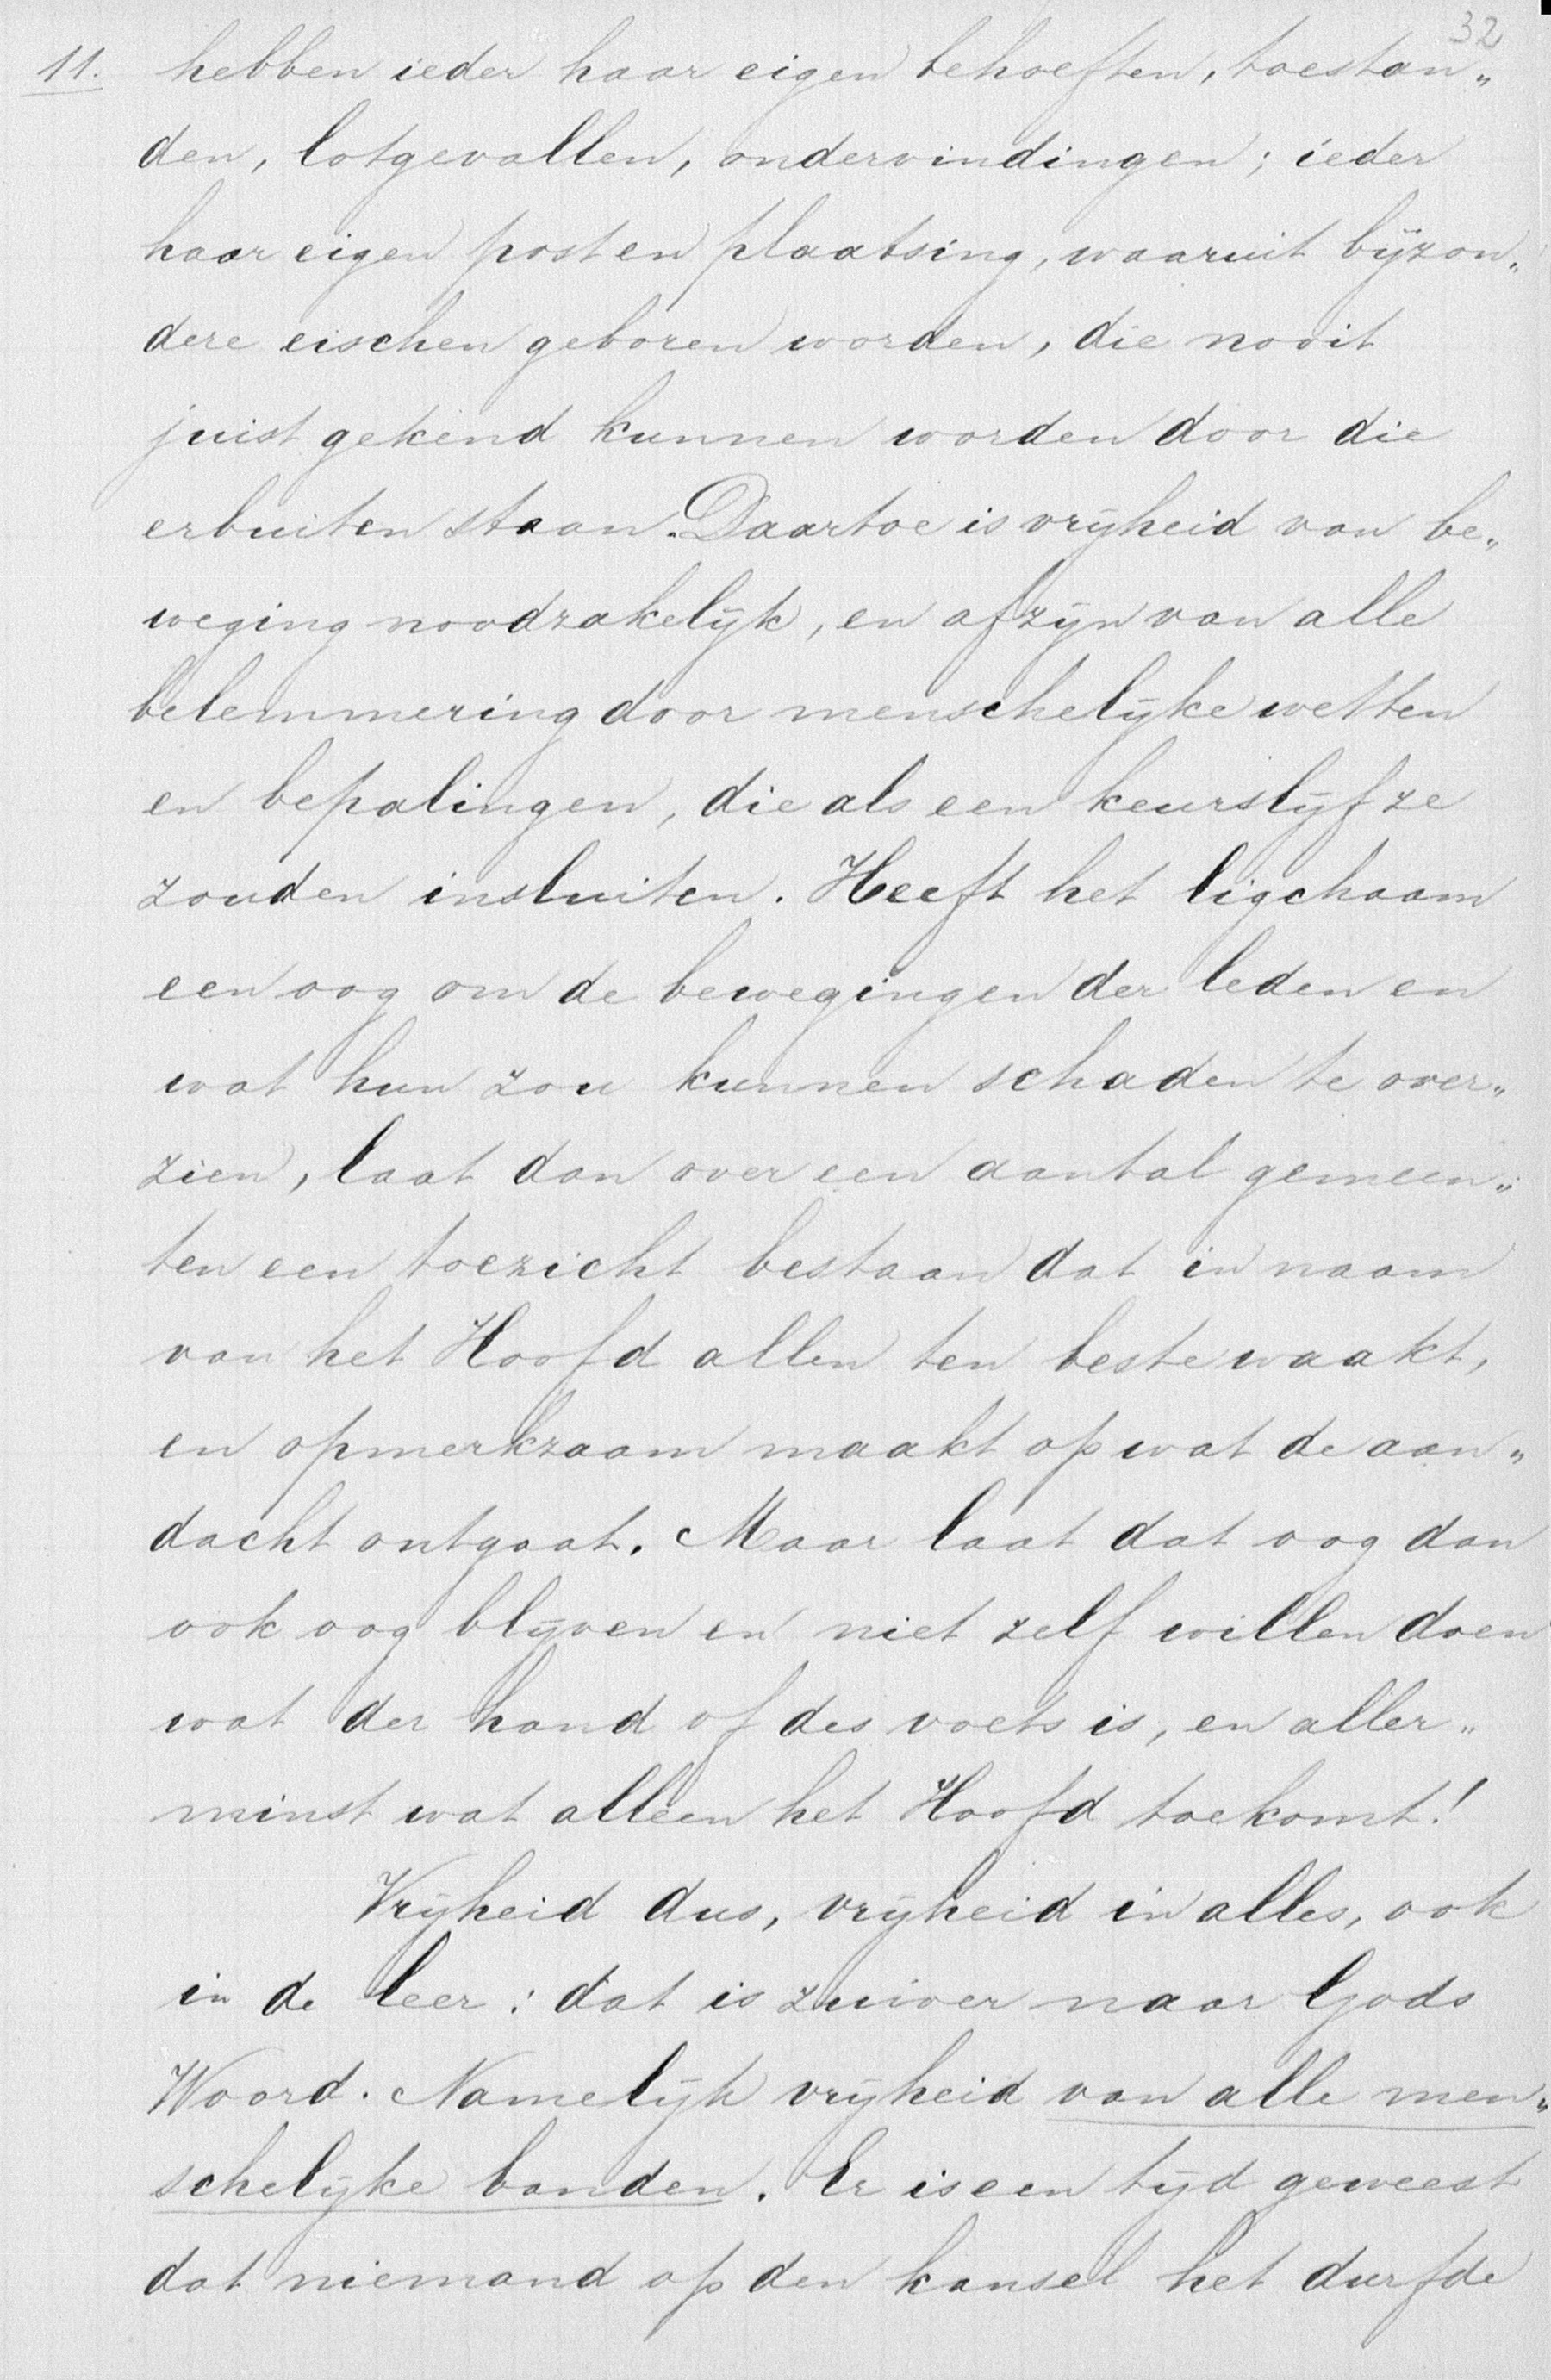 32
11. hebben ieder haar eigen behoeften, toestan„
den, lotgevallen, ondervindingen; ieder
haar eigen post en plaatsing, waaruit bijzon„
dere eischen geboren worden, die nooit
juist gekend kunnen worden door die
erbuiten staan. Daartoe is vrijheid van be„
weging noodzakelijk, en afzijn van alle
belemmering door menschelijke wetten
en bepalingen, die als een keurslijf ze
zouden insluiten. Heeft het ligchaam
een oog om de bewegingen der leden en
wat hun zou kunnen schaden te over„
zien, laat dan over een aantal gemeen„
ten een toezicht bestaan dat in naam
van het Hoofd allen ten beste waakt,
en opmerkzaam maakt op wat de aan„
dacht ontgaat. Maar laat dat oog dan
ook oog blijven en niet zelf willen doen
wat der hand of des voets is, en aller„
minst wat alleen het Hoofd toekomt!
Vrijheid dus, vrijheid in alles, ook
in de leer: dat is zuiver naar Gods
Woord. Namelijk vrijheid van alle men„
schelijke banden. Er is een tijd geweest
dat niemand op den kansel het durfde